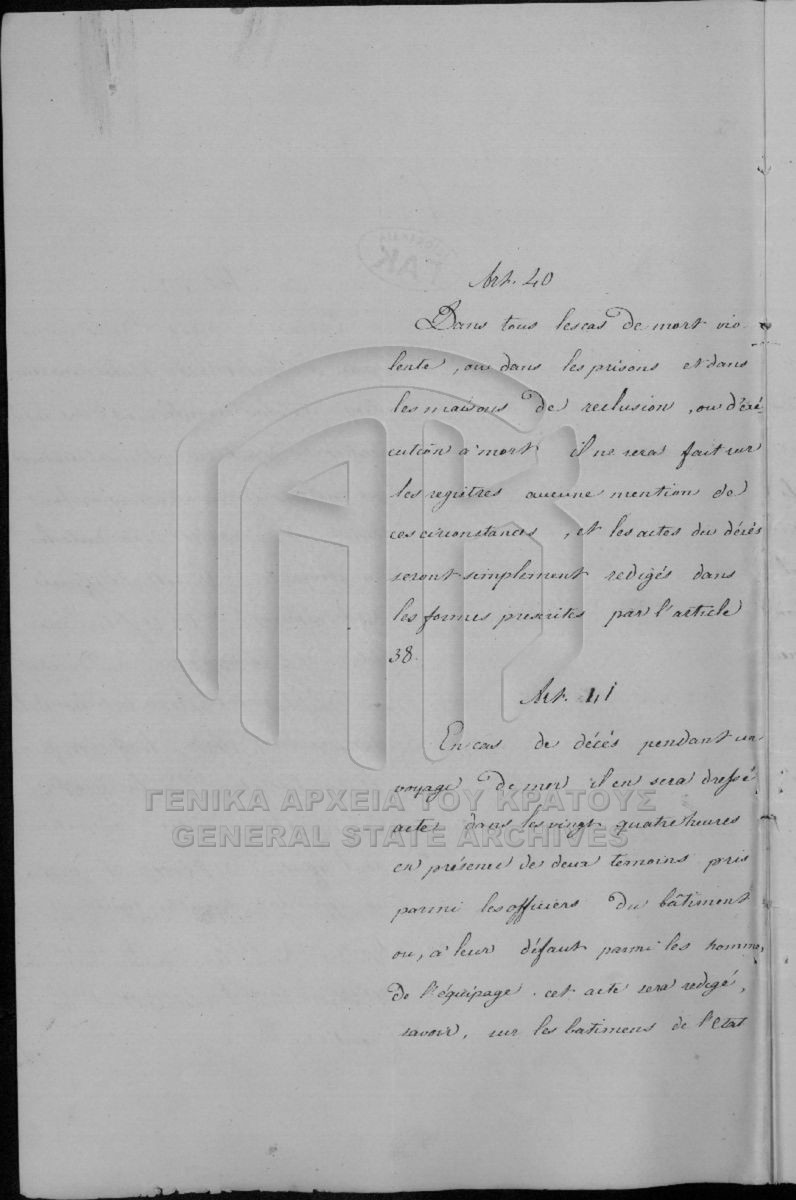 Art. 40
Dans tous les cas de mort vio-
lente, ou dans les prisons et dans
les maisons de reclusion, ou d'exé-
cution à mort il ne sera fait sur
les registres aucune mention de
ces circonstances, et les actes du décés
seront simplement redigés dans
les formes prescrites par l'article
38.
Art. 41
En cas de décés pendant un
voyage de mer il en sera dressé
acte dans les vingt quatre heures
en présence de deux temoins pris
parmi les officiers du bâtiment
ou, à leur défaut parmi les hommes
de l'équipage. cet acte sera redigé,
savoir, sur les batimens de l'Etat
ΓΑΚ
ΓΕΝΙΚΑ ΑΡΧΕΙΑ ΤΟΥ ΚΡΑΤΟΥΣ
GENERAL STATE ARCHIVES